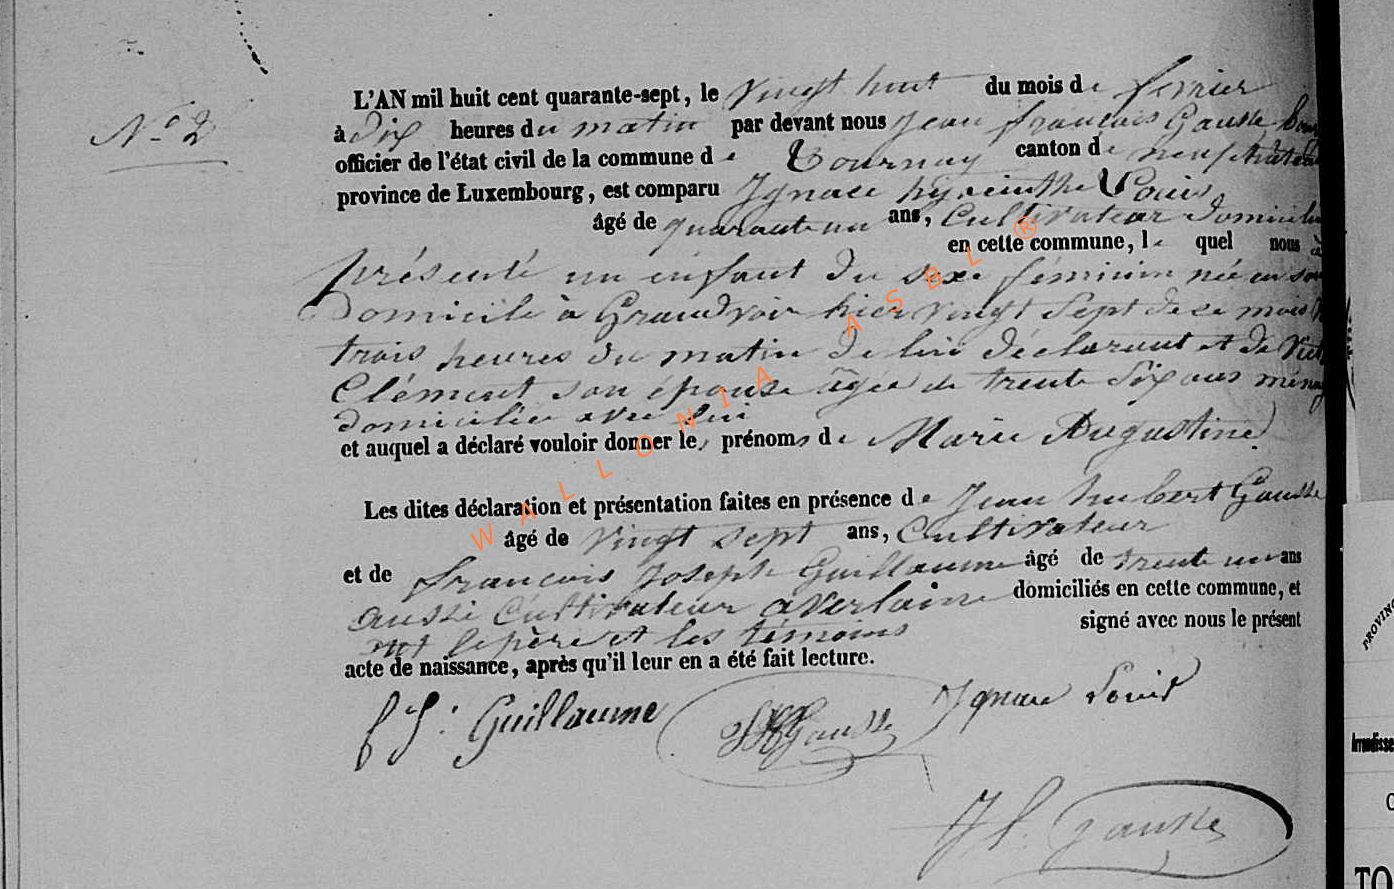 N° 2
L'AN mil huit cent quarante-sept, le vingt huit du mois de fevrier
à dix heures du matin par devant nous Jean françois Gausse
officier de l'état civil de la commune de Tournay canton de neufchateau
province de Luxembourg, est comparu Ignace hyacinthe Louis
âgé de quarante un ans, Cultivateur domicilié
en cette commune, le quel nous à
présenté un enfant du sexe féminin née en son
Domicile à Grandvoir hier vingt sept de ce mois
trois heures du matin de lui déclarant et de
Clément son épouse âgée de trente six ans
domiciliée avec lui
et auquel a déclaré vouloir donner les prénoms de Marie Augustine
Les dites déclaration et présentation faites en présence de Jean hubert Gausse
âgé de vingt sept ans, Cultivateur
et de francois Joseph Guillaume âgé de trente un ans
aussi Cultivateur à verlaine domiciliés en cette commune, et
ont le père et les témoins signé avec nous le présent
acte de naissance, après qu'il leur en a été fait lecture.
f J. Guillaume Gausse Ignace Louis
J f. Gausse
WALLONIA ASBL ®
PROVINC
Arrondisse
TO